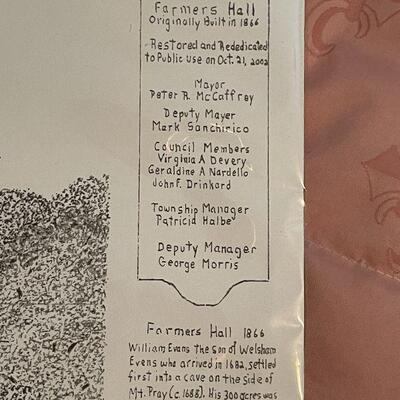 Farmers Hall
Originally Built in 1866
Restored and Rededicated
to Public use on Oct. 21, 2002
Mayor
Peter R. McCaffrey
Deputy Mayer
Mark Sanchirico
Council Members
Virginia A Devery
Geraldine A Nardello
John F. Drinkard
Township Manager
Patricia Halbe
Deputy Manager
George Morris
Farmers Hall 1866
William Evans the son of Welsham
Evans who arrived in 1682, settled
first into a cave on the side of
Mt. Pray (c. 1688). His 300 acres was